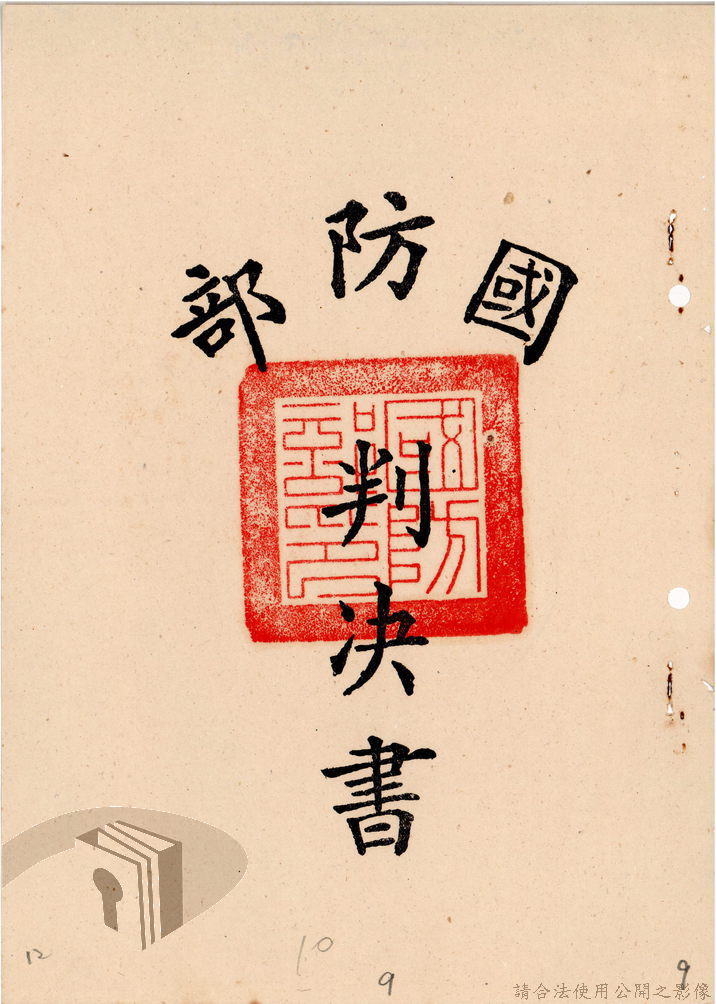 國防部
判決書
國防部印
12
10
9
9
請合法使用公開之影像